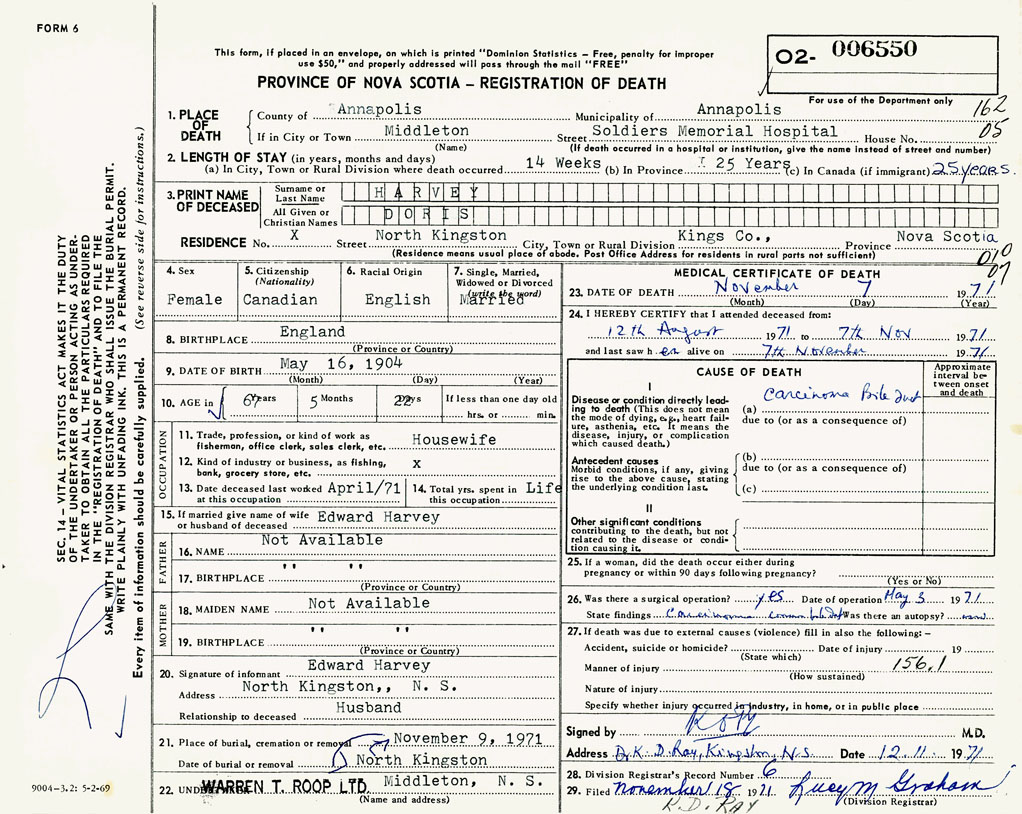 FORM 6
This form, if placed in an envelope, on which is printed "Dominion Statistics – Free, penalty for improper
use $50," and properly addressed will pass through the mail "FREE"
PROVINCE OF NOVA SCOTIA – REGISTRATION OF DEATH
O2- 006550
For use of the Department only
162
05
1. PLACE OF DEATH
County of Annapolis Municipality of Annapolis
If in City or Town Middleton Street Soldiers Memorial Hospital House No.
(Name) (If death occurred in a hospital or institution, give the name instead of street and number)
2. LENGTH OF STAY (in years, months and days)
(a) In City, Town or Rural Division where death occurred 14 Weeks (b) In Province 25 Years (c) In Canada (if immigrant) 25 years.
3. PRINT NAME OF DECEASED
Surname or Last Name HARVEY
All Given or Christian Names DORIS
RESIDENCE No. X Street North Kingston City, Town or Rural Division Kings Co., Province Nova Scotia
(Residence means usual place of abode. Post Office Address for residents in rural parts not sufficient)
010
07
4. Sex
Female
5. Citizenship
(Nationality)
Canadian
6. Racial Origin
English
7. Single, Married,
Widowed or Divorced
(write the word)
Married
8. BIRTHPLACE England
(Province or Country)
9. DATE OF BIRTH May 16, 1904
(Month) (Day) (Year)
10. AGE in 67 Years 5 Months 22 Days If less than one day old
hrs. or min.
OCCUPATION
11. Trade, profession, or kind of work as
fisherman, office clerk, sales clerk, etc. Housewife
12. Kind of industry or business, as fishing,
bank, grocery store, etc. X
13. Date deceased last worked
at this occupation April/71
14. Total yrs. spent in
this occupation Life
15. If married give name of wife
or husband of deceased Edward Harvey
FATHER
16. NAME Not Available
17. BIRTHPLACE " "
(Province or Country)
MOTHER
18. MAIDEN NAME Not Available
19. BIRTHPLACE " "
(Province or Country)
20. Signature of informant Edward Harvey
Address North Kingston,, N. S.
Relationship to deceased Husband
21. Place of burial, cremation or removal November 9, 1971
Date of burial or removal North Kingston
22. WARREN T. ROOP LTD. Middleton, N. S.
(Name and address)
MEDICAL CERTIFICATE OF DEATH
23. DATE OF DEATH November 7 1971
(Month) (Day) (Year)
24. I HEREBY CERTIFY that I attended deceased from:
12th August 1971 to 7th Nov 1971
and last saw her alive on 7th November 1971
CAUSE OF DEATH
Approximate
interval be-
tween onset
and death
I
Disease or condition directly lead-
ing to death (This does not mean
the mode of dying, e.g., heart fail-
ure, asthenia, etc. It means the
disease, injury, or complication
which caused death.)
(a) Carcinoma Bile Duct
due to (or as a consequence of)
Antecedent causes
Morbid conditions, if any, giving
rise to the above cause, stating
the underlying condition last.
(b)
due to (or as a consequence of)
(c)
II
Other significant conditions
contributing to the death, but not
related to the disease or condi-
tion causing it.
25. If a woman, did the death occur either during
pregnancy or within 90 days following pregnancy?
(Yes or No)
26. Was there a surgical operation? yes Date of operation May 3 1971
State findings Carcinoma common bile duct Was there an autopsy?
27. If death was due to external causes (violence) fill in also the following: –
Accident, suicide or homicide? Date of injury 19
(State which)
Manner of injury 156.1
(How sustained)
Nature of injury
Specify whether injury occurred in industry, in home, or in public place
Signed by M.D.
Address Dr. K. D. Ray, Kingston, N.S. Date 12.11. 1971
28. Division Registrar's Record Number 6
29. Filed November 18 1971 Lucy M Graham
K.D. RAY (Division Registrar)
SEC. 14 – VITAL STATISTICS ACT MAKES IT THE DUTY
OF THE UNDERTAKER OR PERSON ACTING AS UNDER-
TAKER TO OBTAIN ALL THE PARTICULARS REQUIRED
IN THE "REGISTRATION OF DEATH" AND TO FILE THE
SAME WITH THE DIVISION REGISTRAR WHO SHALL ISSUE THE BURIAL PERMIT.
WRITE PLAINLY WITH UNFADING INK. THIS IS A PERMANENT RECORD.
Every item of information should be carefully supplied. (See reverse side for instructions.)
9004-3.2: 5-2-69